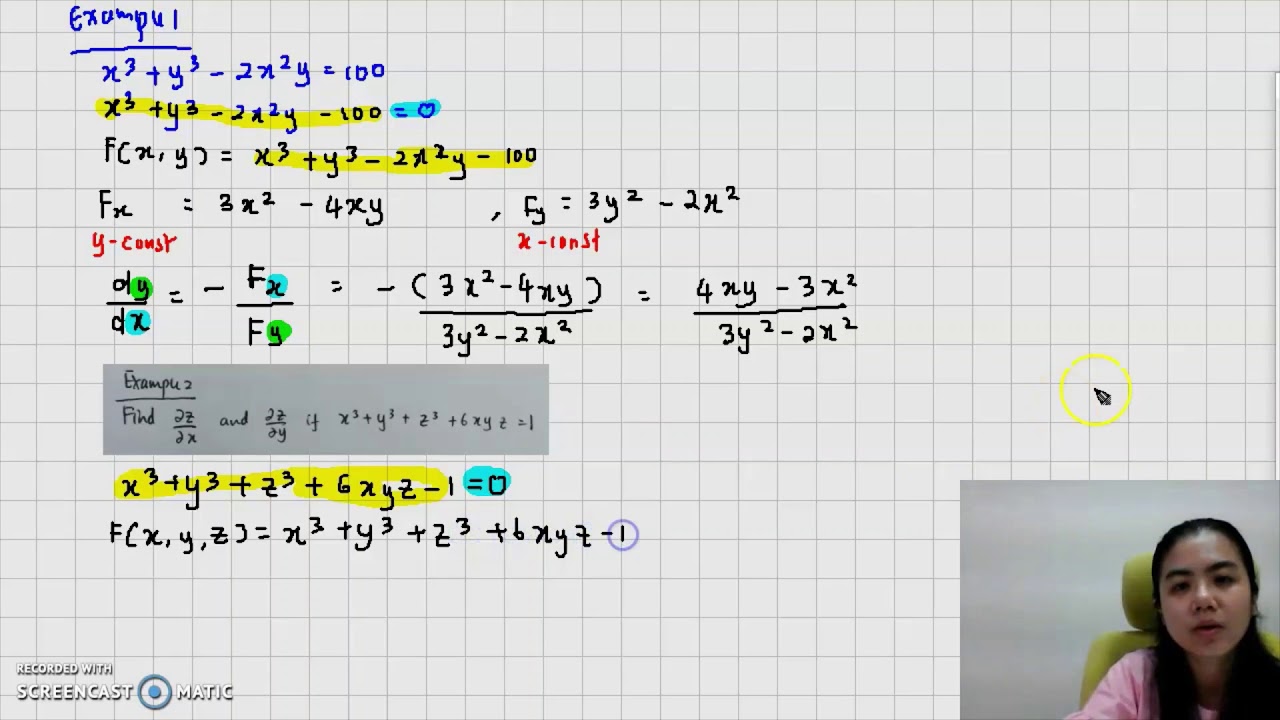 Example 1
x³ + y³ - 2x²y = 100
x³ + y³ - 2x²y - 100 = 0
F(x, y) = x³ + y³ - 2x²y - 100
Fx = 3x² - 4xy , Fy = 3y² - 2x²
y-const x-const
dy/dx = - Fx/Fy = -(3x² - 4xy)/(3y² - 2x²) = (4xy - 3x²)/(3y² - 2x²)
Example 2
Find ∂z/∂x and ∂z/∂y if x³ + y³ + z³ + 6xyz = 1
x³ + y³ + z³ + 6xyz - 1 = 0
F(x, y, z) = x³ + y³ + z³ + 6xyz - 1
RECORDED WITH
SCREENCAST MATIC